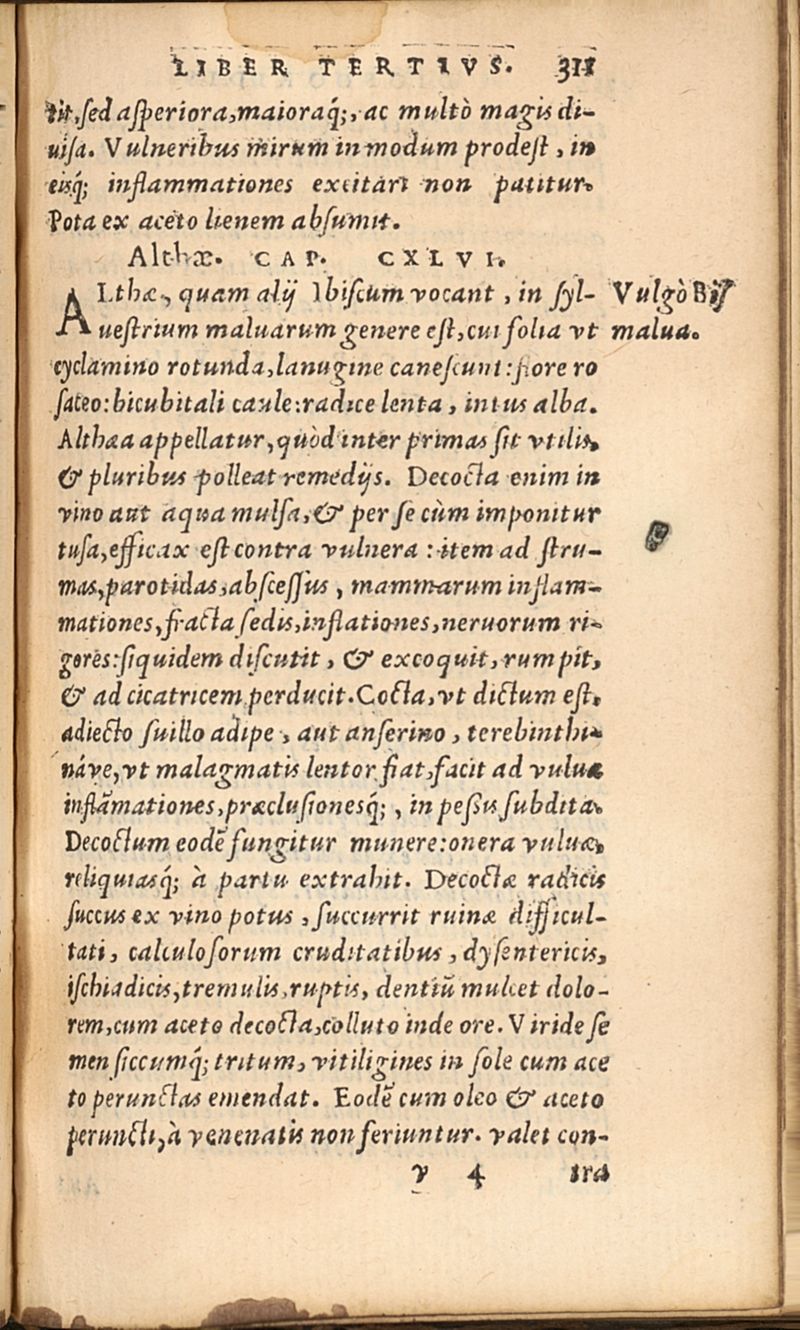 LIBER TERTIVS. 311
tit, sed asperiora, maioraq́;, ac multò magis di-
uisa. Vulneribus mirum in modum prodest, in
eisq́; inflammationes excitari non patitur.
Pota ex aceto lienem absumit.
Althæ. CAP. CXLVI.
ALthæ, quam alij Ibiscum vocant, in syl-
uestrium maluarum genere est, cui folia vt
cyclamino rotunda, lanugine canescunt: flore ro
saceo: bicubitali caule: radice lenta, intus alba.
Althæa appellatur, quòd inter primas sit vtilis,
& pluribus polleat remedijs. Decocta enim in
vino aut aqua mulsa, & per se cùm imponitur
tusa, efficax est contra vulnera: item ad stru-
mas, parotidas, abscessus, mammarum inflam-
mationes, fracta sedis, inflationes, neruorum ri-
gores: siquidem discutit, & excoquit, rumpit,
& ad cicatricem perducit. Cocta, vt dictum est,
adiecto suillo adipe, aut anserino, terebinthi-
náve, vt malagmatis lentor fiat, facit ad vuluæ
inflãmationes, præclusionesq́;, in pessis subdita.
Decoctum eodẽ fungitur munere: onera vuluæ,
reliquiasq́; à partu extrahit. Decoctæ radicis
succus ex vino potus, succurrit ruinæ difficul-
tati, calculosorum cruditatibus, dysentericis,
ischiadicis, tremulis, ruptis, dentiũ mulcet dolo-
rem, cum aceto decocta, colluto inde ore. Viride se
men siccumq́; tritum, vitiligines in sole cum ace
to perunctas emendat. Eodẽ cum oleo & aceto
peruncti, à venenatis non feriuntur. valet con-
v 4 tra
Vulgò Bis
malua.